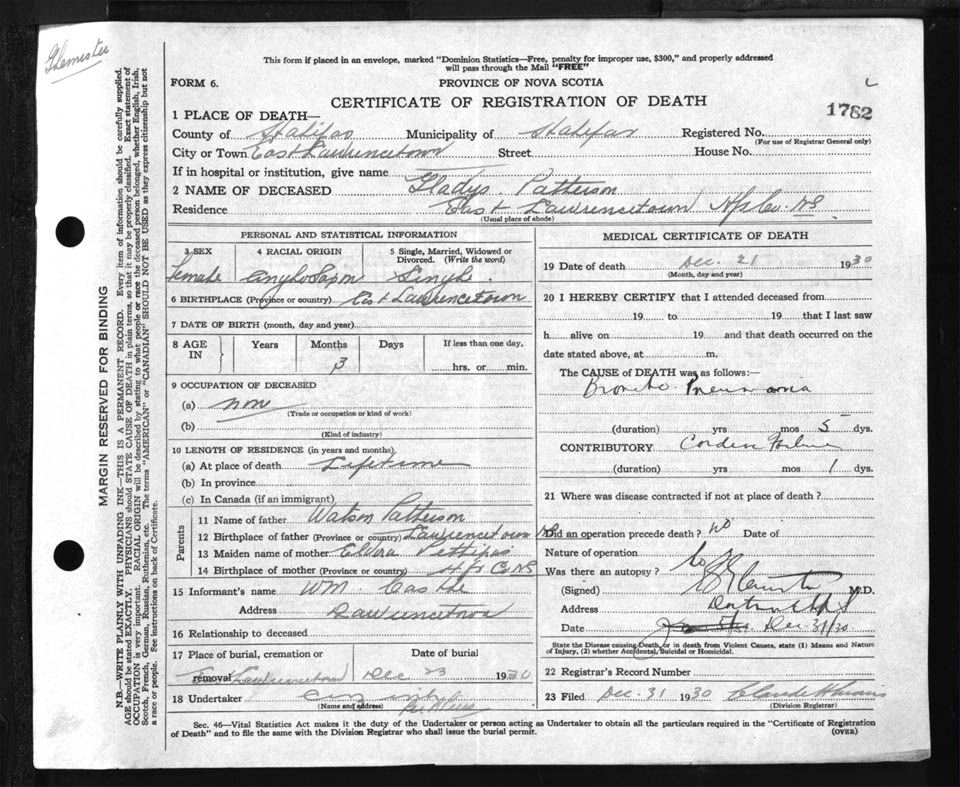 This form if placed in an envelope, marked "Dominion Statistics—Free, penalty for improper use, $300," and properly addressed
will pass through the Mail "FREE"
FORM 6.
PROVINCE OF NOVA SCOTIA
CERTIFICATE OF REGISTRATION OF DEATH
1782
1 PLACE OF DEATH—
County of Halifax Municipality of Halifax Registered No.
(For use of Registrar General only)
City or Town East Lawrencetown Street House No.
If in hospital or institution, give name
2 NAME OF DECEASED Gladys Patterson
Residence East Lawrencetown Hfx Co. NS
(Usual place of abode)
PERSONAL AND STATISTICAL INFORMATION
3 SEX 4 RACIAL ORIGIN 5 Single, Married, Widowed or Divorced. (Write the word)
Female Anglo Saxon Single
6 BIRTHPLACE (Province or country) East Lawrencetown
7 DATE OF BIRTH (month, day and year)
8 AGE IN Years Months Days If less than one day,
3 hrs. or min.
9 OCCUPATION OF DECEASED
(a) none
(Trade or occupation or kind of work)
(b)
(Kind of industry)
10 LENGTH OF RESIDENCE (in years and months)
(a) At place of death Lifetime
(b) In province
(c) In Canada (if an immigrant)
Parents
11 Name of father Watson Patterson
12 Birthplace of father (Province or country) Lawrencetown NS
13 Maiden name of mother Eldora Pettipas
14 Birthplace of mother (Province or country) Hfx Co NS
15 Informant's name WM. Castle
Address Lawrencetown
16 Relationship to deceased
17 Place of burial, cremation or removal Date of burial
Lawrencetown Dec 23 1930
18 Undertaker
(Name and address)
MEDICAL CERTIFICATE OF DEATH
19 Date of death Dec. 21 1930
(Month, day and year)
20 I HEREBY CERTIFY that I attended deceased from
19 to 19 that I last saw
h alive on 19 and that death occurred on the
date stated above, at m.
The CAUSE of DEATH was as follows:—
Broncho Pneumonia
(duration) yrs mos 5 dys.
CONTRIBUTORY
(duration) yrs mos 1 dys.
21 Where was disease contracted if not at place of death?
Did an operation precede death? no Date of
Nature of operation
Was there an autopsy? no
(Signed) M.D.
Address
Date Dec 31/30
State the Disease causing Death, or in death from Violent Causes, state (1) Means and Nature
of Injury, (2) whether Accidental, Suicidal or Homicidal.
22 Registrar's Record Number
23 Filed Dec. 31 1930
(Division Registrar)
Sec. 46—Vital Statistics Act makes it the duty of the Undertaker or person acting as Undertaker to obtain all the particulars required in the "Certificate of Registration
of Death" and to file the same with the Division Registrar who shall issue the burial permit.
(OVER)
MARGIN RESERVED FOR BINDING
N.B.—WRITE PLAINLY WITH UNFADING INK—THIS IS A PERMANENT RECORD. Every item of information should be carefully supplied.
AGE should be stated EXACTLY. PHYSICIANS should STATE CAUSE OF DEATH in plain terms, so that it may be properly classified. Exact statement of
OCCUPATION is very important. RACIAL ORIGIN will be described by stating to what people or race the deceased person belonged, whether English, Irish,
Scotch, French, German, Russian, Ruthenian, etc. The terms "AMERICAN" or "CANADIAN" SHOULD NOT BE USED as they express citizenship but not
a race or people. See instructions on back of Certificate.